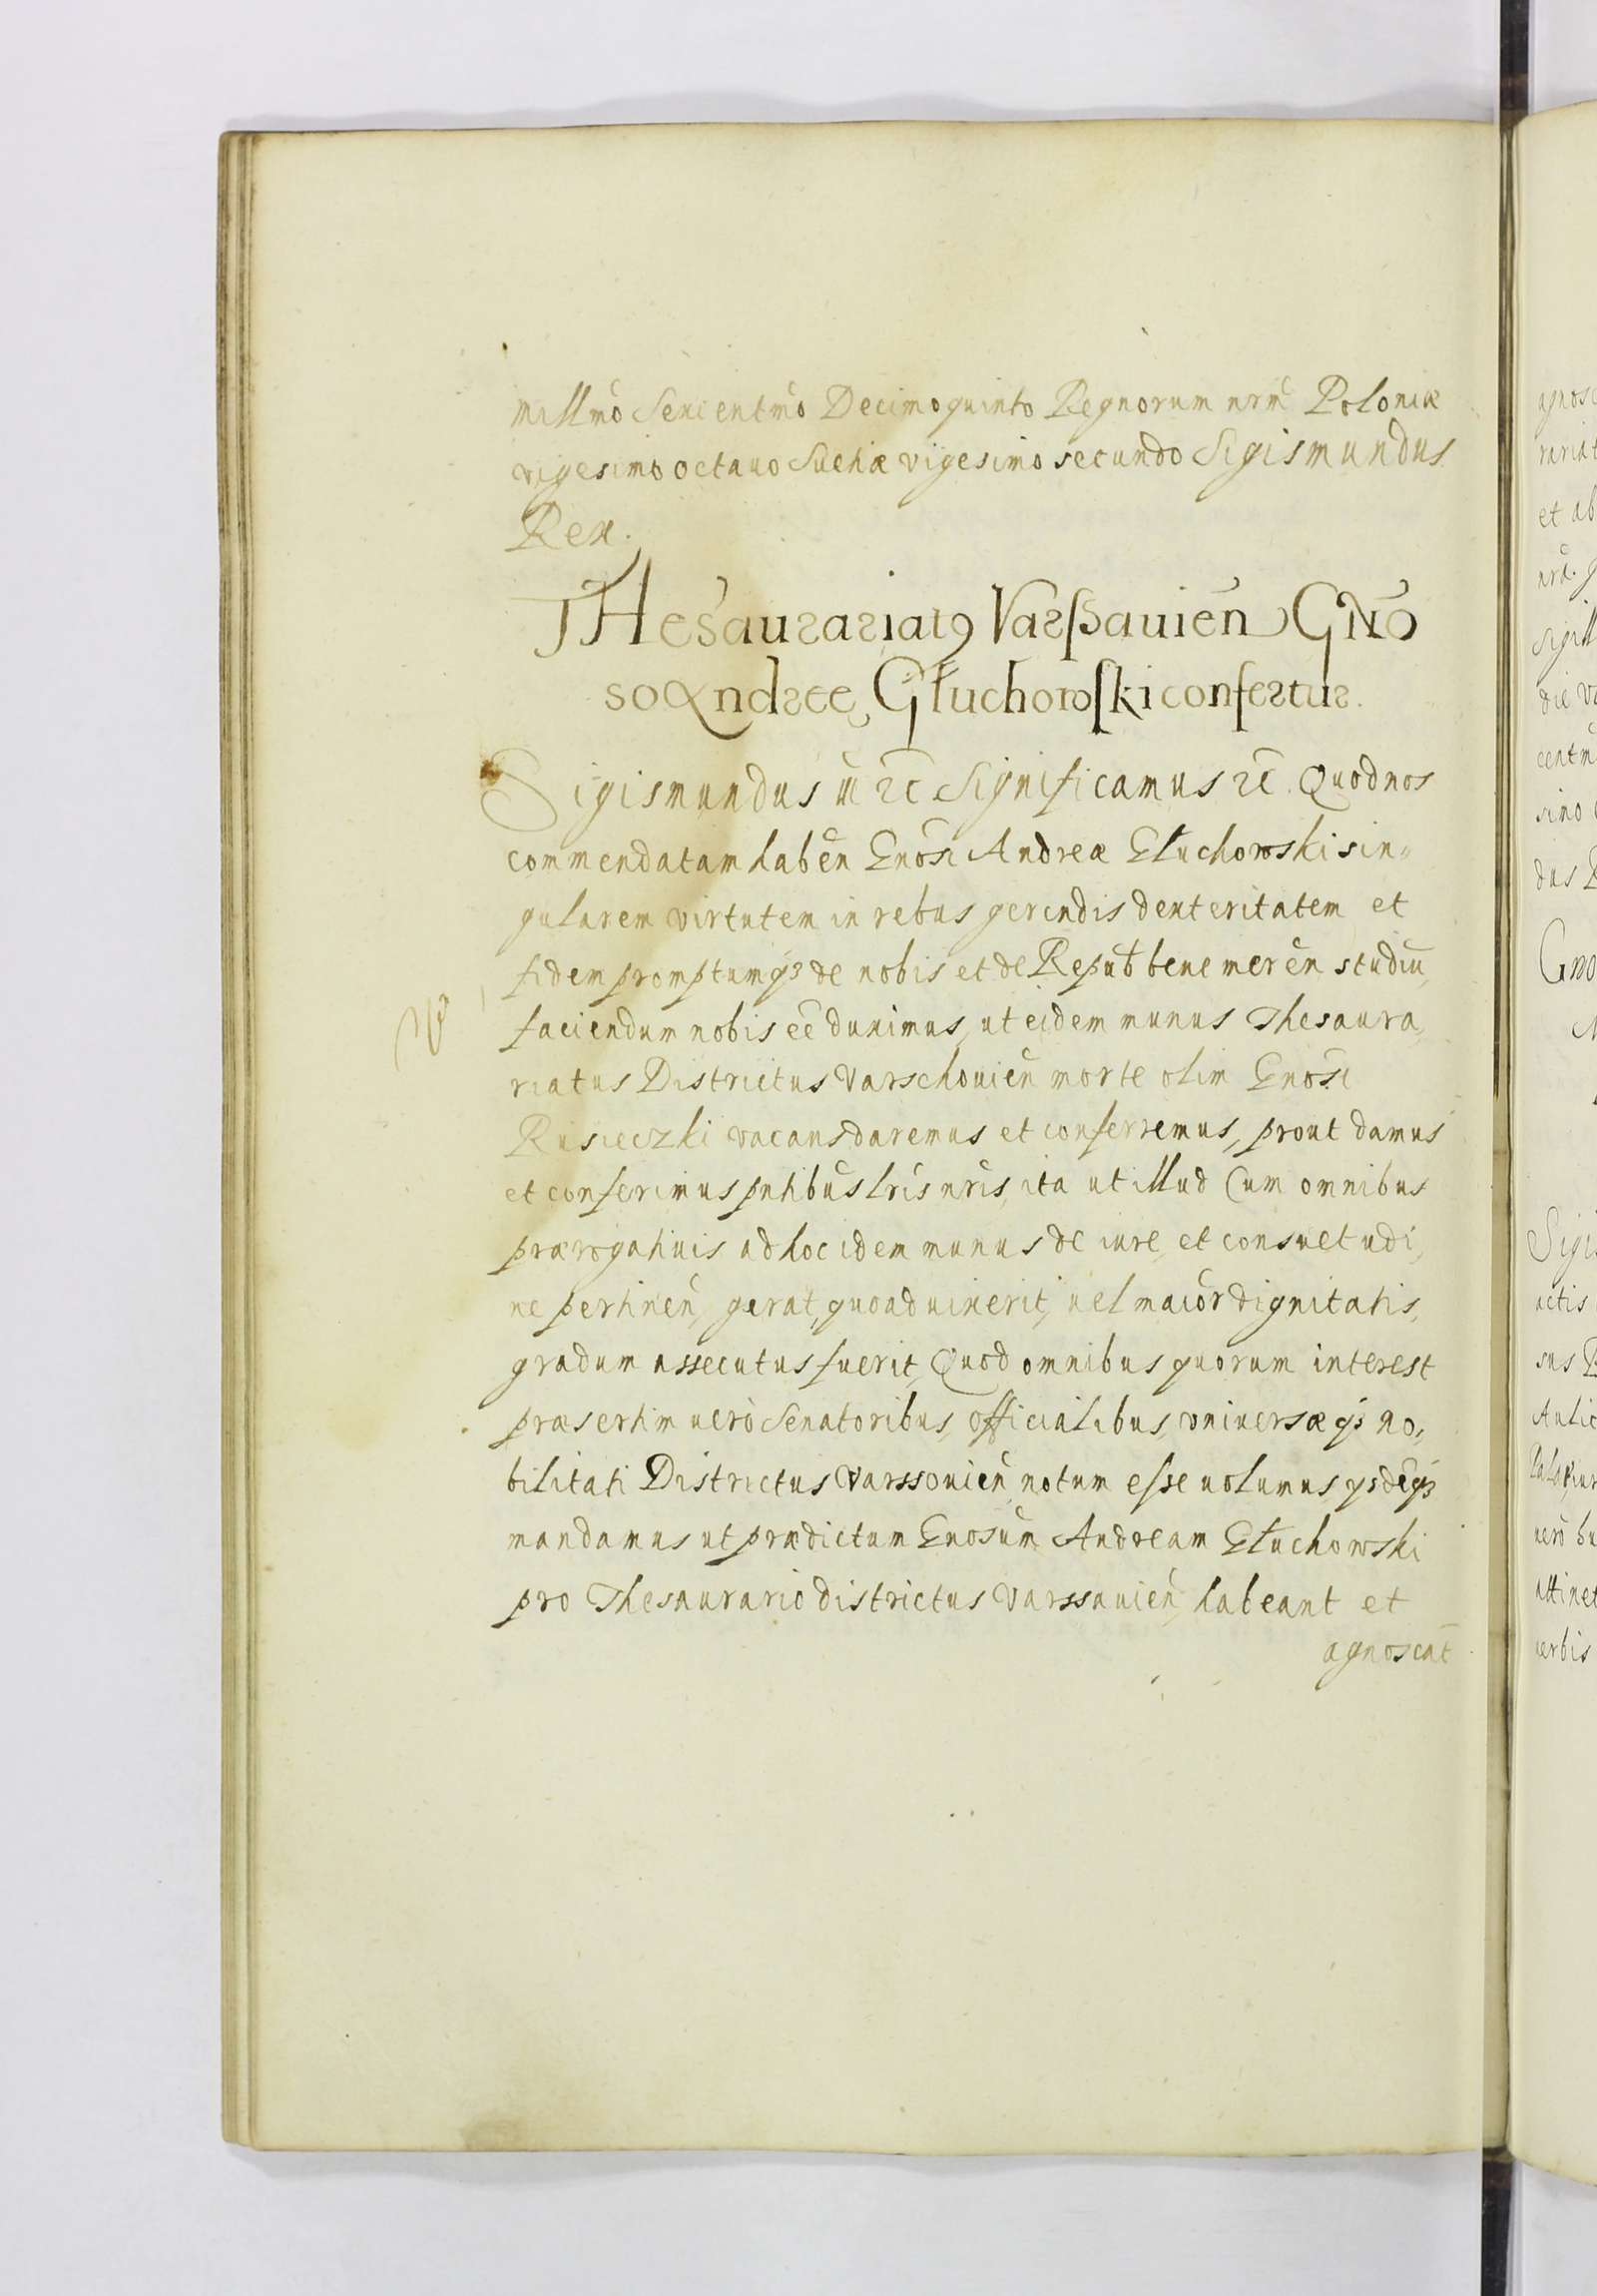 Millmo Sexcentmo Decimoquinto Regnorum nrm̃ Poloniæ
vigesimo octauo Suetiæ vigesimo secundo Sigismundus
Rex.
THesaurariat9 Varssauień GNO
so Andreæ Głuchowski confertur.
Sigismundus iii rc̃ Significamus rc̃. Quod nos
commendatam habeñ Gnosi Andreæ Głuchowski sin„
gularem virtutem in rebus gerendis dexteritatem et
fidem promptumq3 de nobis et de Repub bene mereñ studiũ,
faciendum nobis eẽ duximus, ut eidem munus Thesaura,
riatus Districtus Varschouień morte olim Gnosi
Rusieczki vacans daremus et conferremus, prout damus
et conferimus pñtibus lr̃is nr̃is, ita ut illud Cum omnibus
prærogatiuis ad hoc idem munus de iure, et consuetudi,
ne pertineñ, gerat, quoad uixerit, uel maior̃ dignitatis,
gradum assecutus fuerit, Quod omnibus quorum interest
præsertim uerò Senatoribus, officialibus, vniversæq3 no„
bilitati Districtus Varssouień notum esse uolumus,
mandamus ut prædictum Gnosum̃ Andream Głuchowski
pro Thesaurario districtus Varssauień, habeant et
agnoscãt
agnosc
rariat
et ab
nrã. g
sigill
die Va
centm
simo
dus R
Gno
Sigi
actis
sus R
Aulic
uerò bu
attinet
uerbis